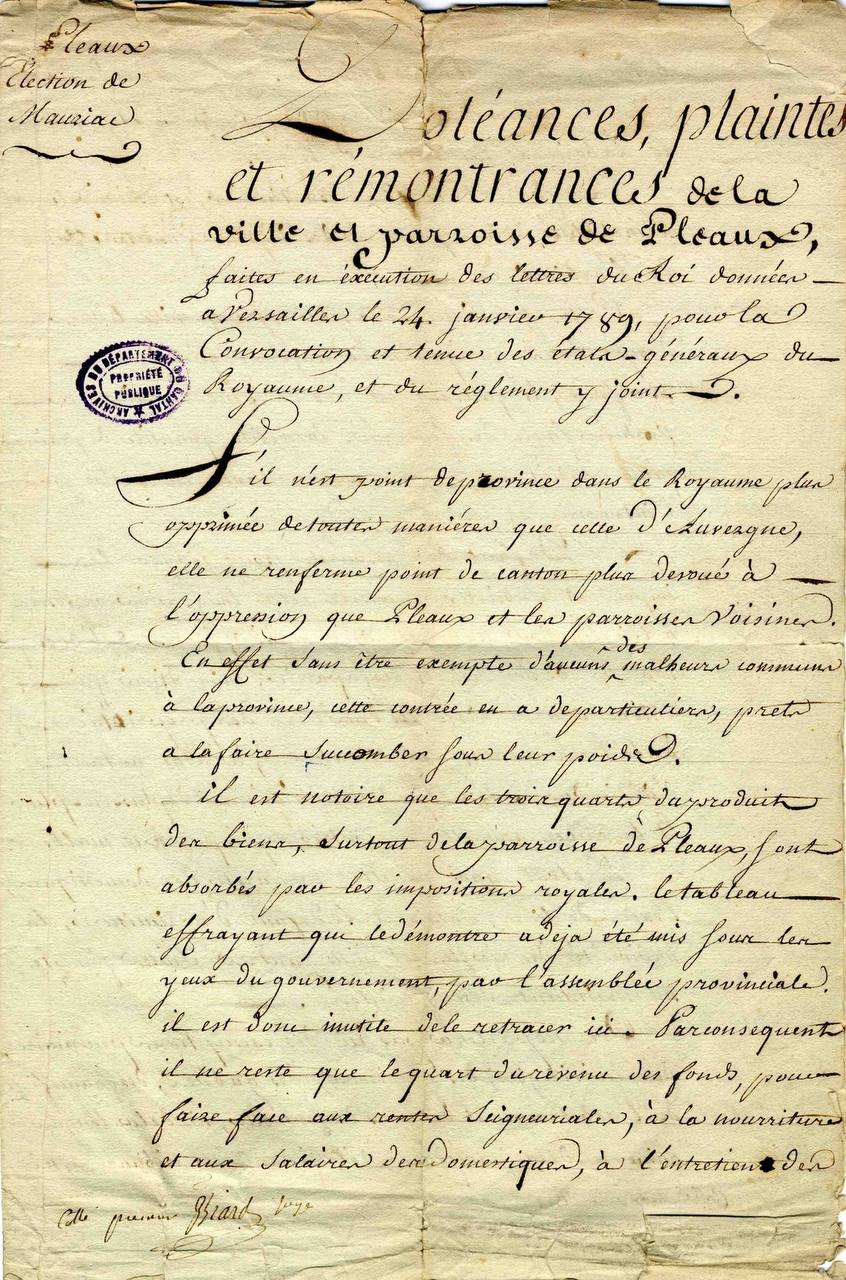 Pleaux
Election de
Mauriac
Doléances, plaintes
et rémontrances de la
ville et parroisse de Pleaux,
faites en éxécution des lettres du Roi données
a Versailles le 24. janvier 1789, pour la
Convocation et tenue des états-généraux du
Royaume, et du réglement y joint.
ARCHIVES DU DÉPARTEMENT DU CANTAL
PROPRIÉTÉ
PUBLIQUE
S'il n'est point de province dans le Royaume plus
opprimée de toutes maniéres que celle d'Auvergne,
elle ne renferme point de canton plus devoué à
l'oppression que Pleaux et les parroisses Voisines.
En effet sans être exempte d'aucuns des malheurs communs
à la province, cette contrée en a de particuliers, prets
a la faire Succomber sous leur poids.
il est notoire que les trois quarts du produit
des biens, Surtout de la parroisse de Pleaux, sont
absorbés par les impositions royales. le tableau
effrayant qui le démontre a deja été mis sous les
yeux du gouvernement, par l'assemblée provinciale.
il est donc inutile de le retracer ici. Par consequent
il ne reste que le quart du revenu des fonds, pour
faire face aux rentes Seigneuriales, à la nourriture
et aux Salaires des domestiques, à l'entretien des
Cotté premier Biard juge